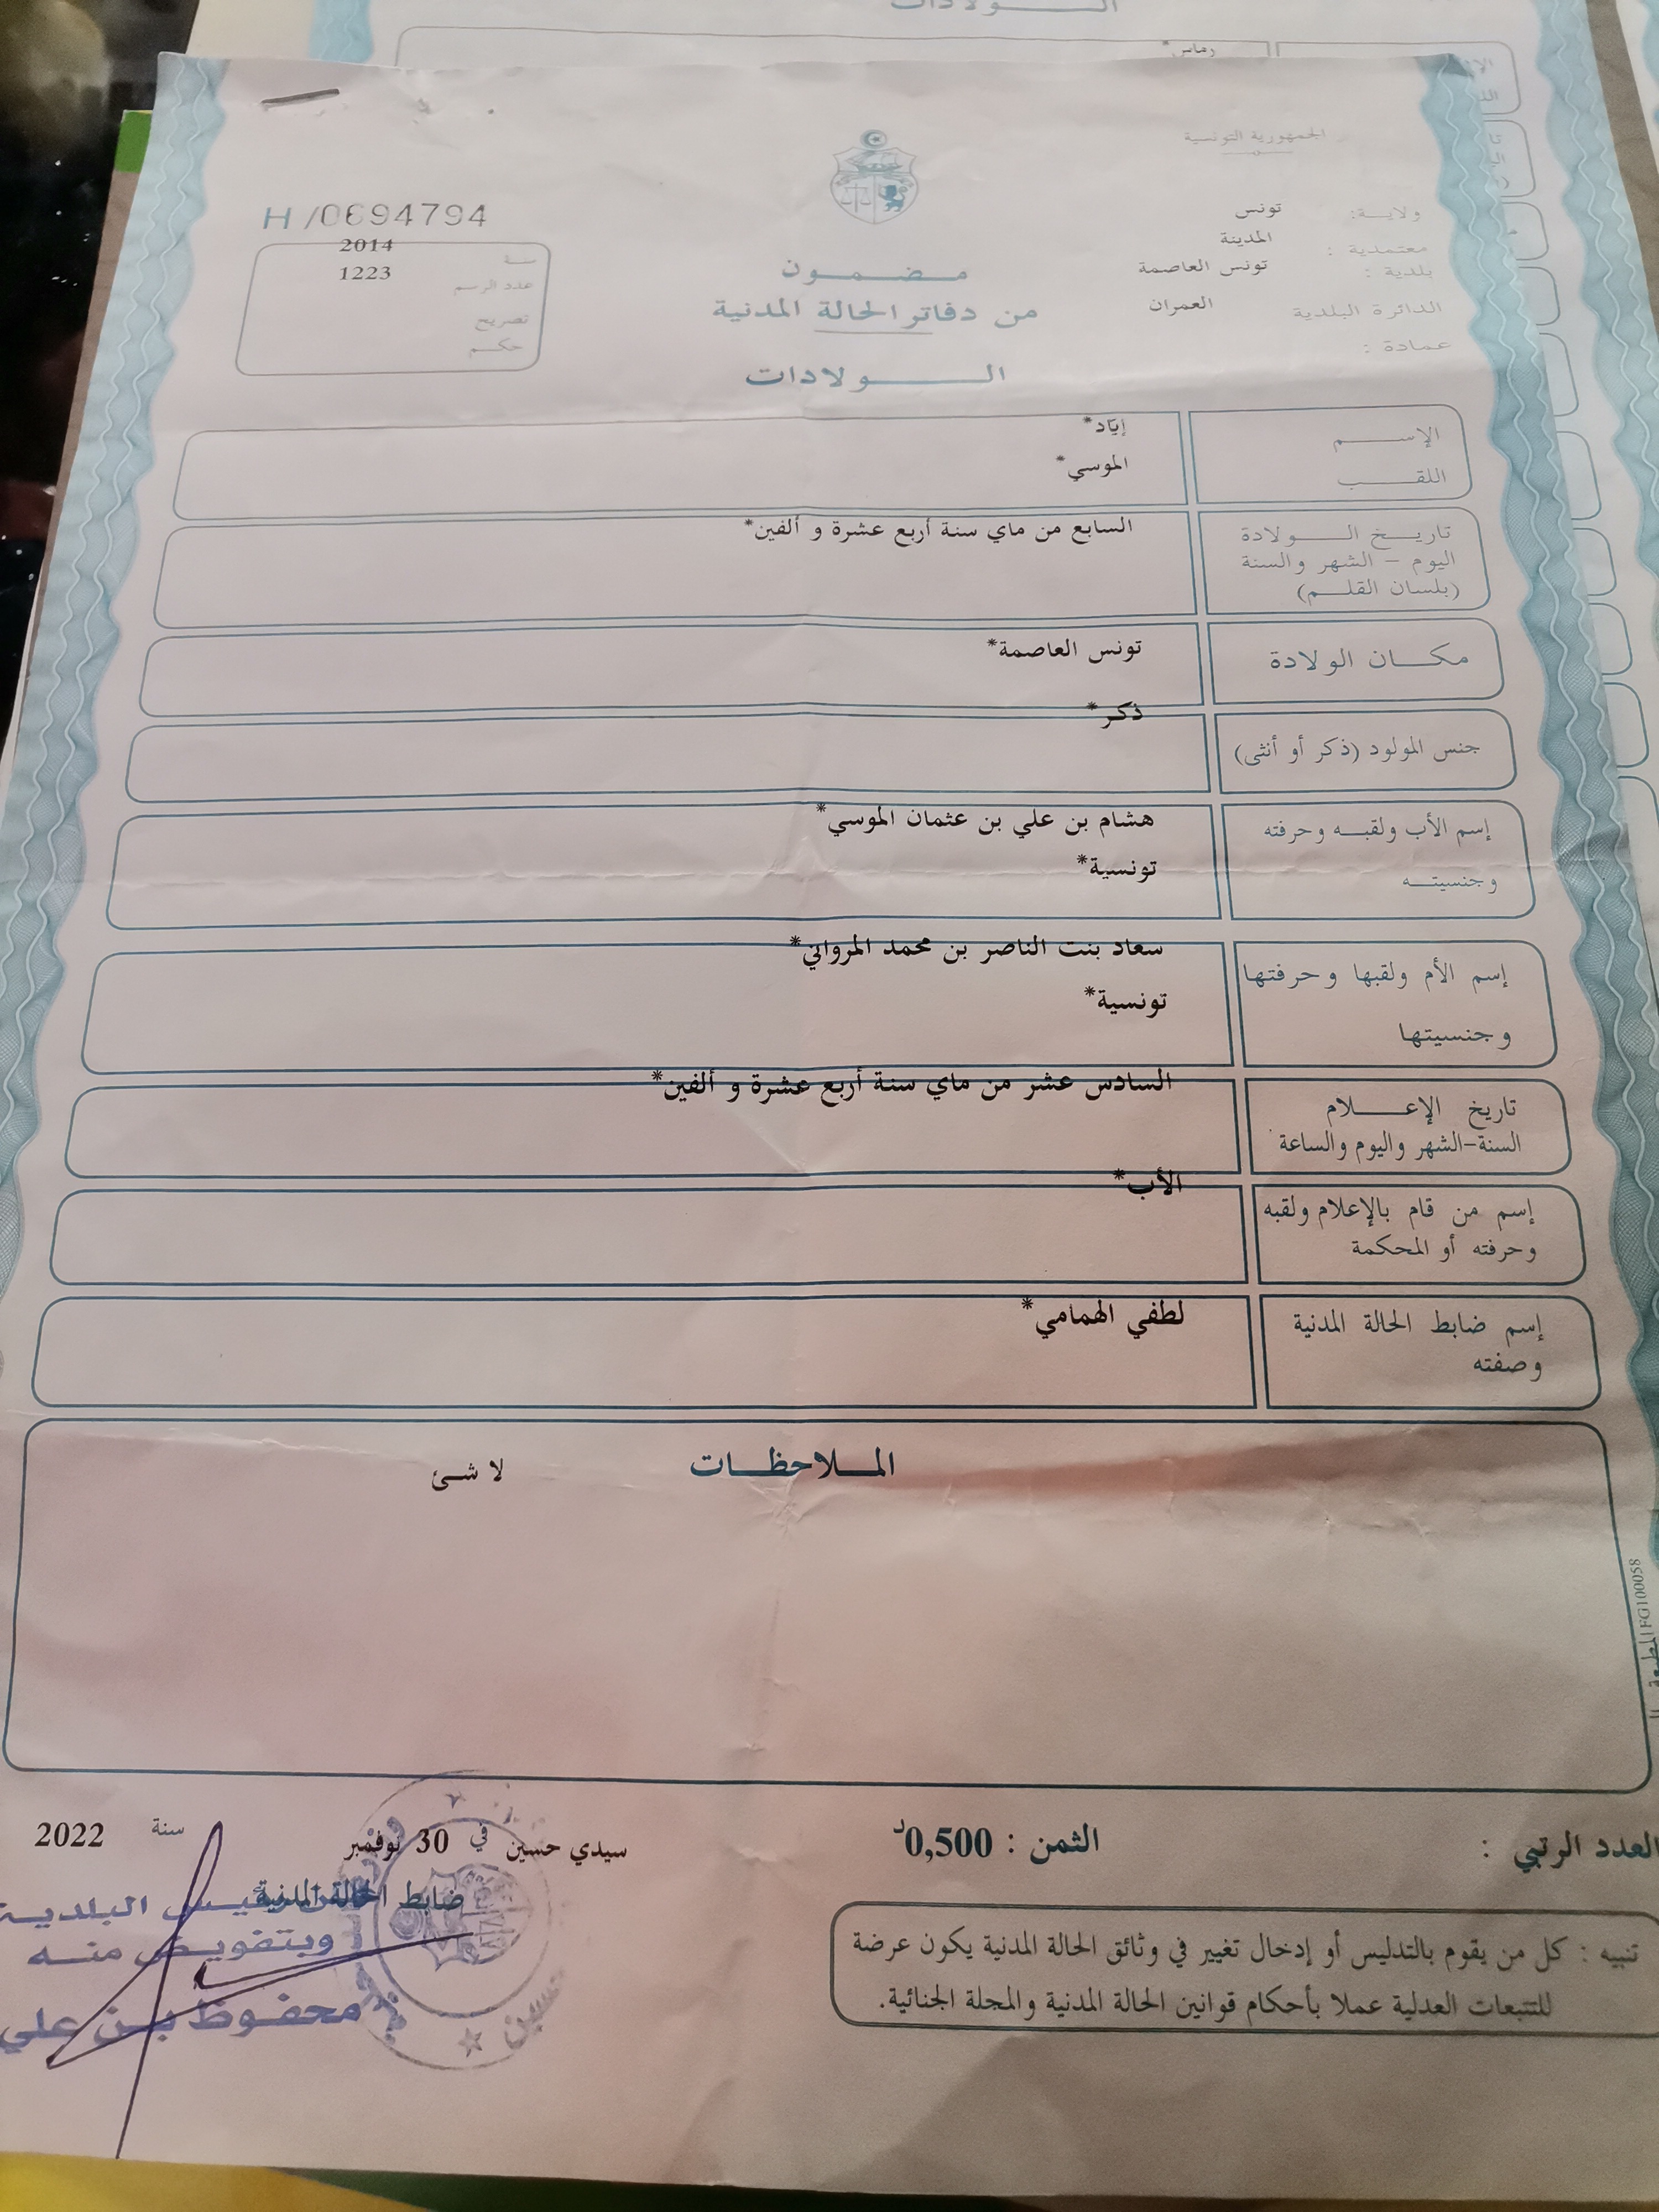 الولادات
الجمهورية التونسية
ولاية: تونس
معتمدية: المدينة
بلدية: تونس العاصمة
الدائرة البلدية العمران
عمادة:
H/0694794
سنة 2014
عدد الرسم 1223
تصريح
حكم
مضمون
من دفاتر الحالة المدنية
الولادات
الإسم إيّاد*
اللقب الموسي*
تاريخ الولادة السابع من ماي سنة أربع عشرة و ألفين*
اليوم - الشهر والسنة
(بلسان القلم)
مكان الولادة تونس العاصمة*
جنس المولود (ذكر أو أنثى) ذكر*
إسم الأب ولقبه وحرفته هشام بن علي بن عثمان الموسي*
وجنسيته تونسية*
إسم الأم ولقبها وحرفتها سعاد بنت الناصر بن محمد المرواني*
وجنسيتها تونسية*
تاريخ الإعلام السادس عشر من ماي سنة أربع عشرة و ألفين*
السنة-الشهر واليوم والساعة
إسم من قام بالإعلام ولقبه الأب*
وحرفته أو المحكمة
إسم ضابط الحالة المدنية لطفي الهمامي*
وصفته
الملاحظات لا شئ
FG100058 المطبعة
العدد الرتبي :
الثمن : 0,500د
سيدي حسين في 30 نوفمبر سنة 2022
ضابط الحالة المدنية
رئيس البلدية
وبتفويض منه
محفوظ بن علي
تنبيه : كل من يقوم بالتدليس أو إدخال تغيير في وثائق الحالة المدنية يكون عرضة
للتتبعات العدلية عملا بأحكام قوانين الحالة المدنية والمجلة الجنائية.